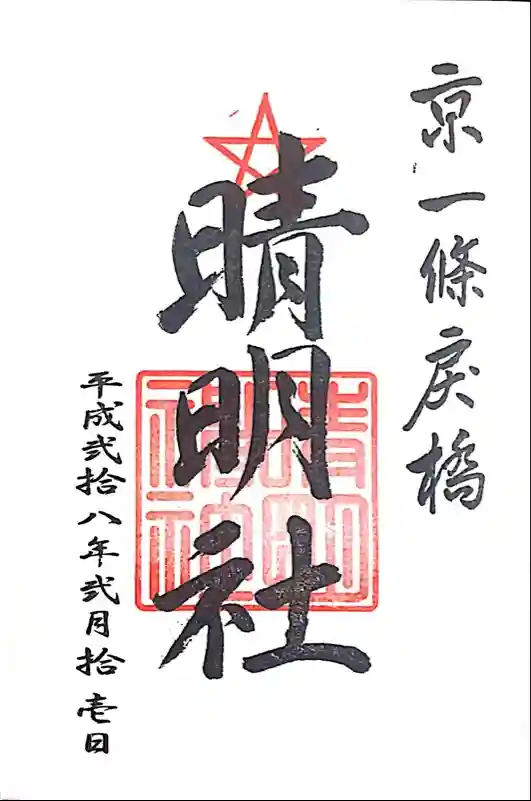 京一條戻橋
晴明社
晴明
神社
平成弐拾八年弐月拾壱日